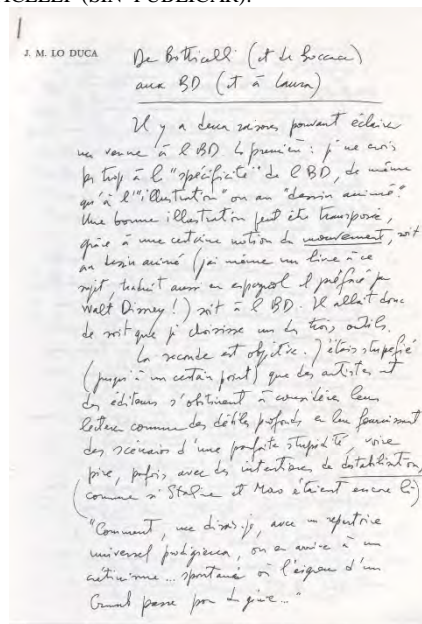 (SIN PUBLICAR).
1
J. M. LO DUCA
De Botticelli (et de Boccace)
aux BD (et à Laura)
Il y a deux raisons pouvant éclairer
ma venue à l BD. La première : je ne crois
pas trop à l "spécificité" de l BD, de même
qu'à l'"illustration" ou au "dessin animé".
Une bonne illustration peut être transposée,
grâce à une certaine notion du mouvement, soit
au dessin animé (j'ai même un livre à ce
sujet, traduit aussi en espagnol et préfacé par
Walt Disney !) soit à l BD. Il allait donc
de soit que je choisisse un des trois outils.
La seconde est objective. J'étais stupéfié
(jusqu'à un certain point) que des artistes et
des éditeurs s'obstinent à considérer leurs
lecteurs comme des débiles profonds en leur fournissant
des scénarios d'une parfaite stupidité, voire
pire, parfois avec des intentions de détabilisation,
(comme si Staline et Mao étaient encore là)
"Comment, me disais-je, avec un répertoire
universel prodigieux, on en arrive à un
crétinisme... spontané où l' d'un
passe pour du génie..."